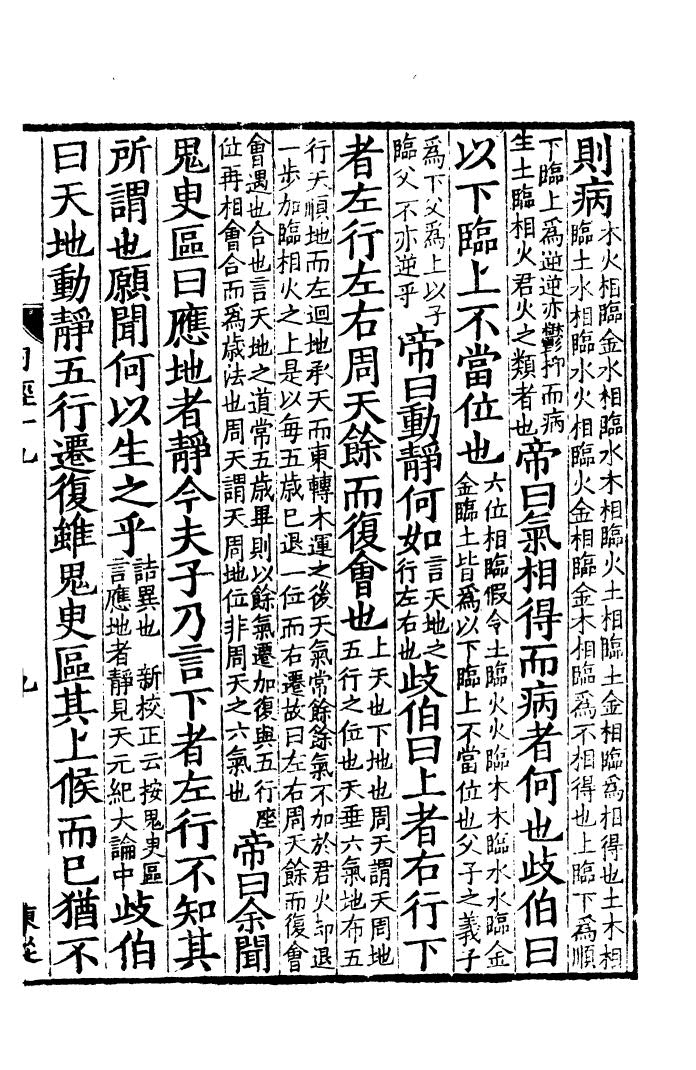 則病木火相臨金水相臨水木相臨火土相臨土金相臨爲相得也土木相
臨土水相臨水火相臨火金相臨金木相臨爲不相得也上臨下爲順
下臨上爲逆逆亦鬱抑而病
生土臨相火君火之類者也帝曰氣相得而病者何也歧伯曰
以下臨上不當位也六位相臨假令土臨火火臨木木臨水水臨金
金臨土皆爲以下臨上不當位也父子之義子
爲下父爲上以子
臨父不亦逆乎帝曰動靜何如言天地之
行左右也歧伯曰上者右行下
者左行左右周天餘而復會也上天也下地也周天謂天周地
五行之位也天垂六氣地布五
行天順地而左迴地承天而東轉木運之後天氣常餘餘氣不加於君火却退
一步加臨相火之上是以每五歲已退一位而右遷故曰左右周天餘而復會
會遇也合也言天地之道常五歲畢則以餘氣遷加復與五行座
位再相會合而爲歲法也周天謂天周地位非周天之六氣也帝曰余聞
鬼臾區曰應地者靜今夫子乃言下者左行不知其
所謂也願聞何以生之乎詰異也 新校正云按鬼臾區
言應地者靜見天元紀大論中歧伯
曰天地動靜五行遷復雖鬼臾區其上候而已猶不
九